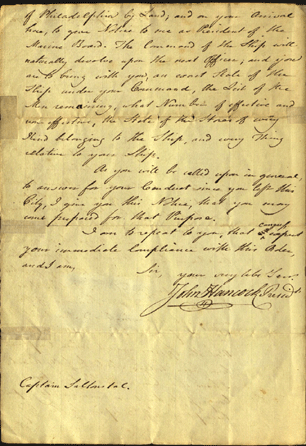 of Philadelphia by Land, and on your Arrival
here, to give Notice to me as President of the
Marine Board. The Command of the Ship will
naturally devolve upon the next Officer, and you
are to bring with you, an exact State of the
Ship under your Command, the List of the
Men remaining, what Number of effective and
non effective, the State of the Stores of every
Kind belonging to the Ship, and every Thing
relative to your Ship.
As you will be called upon in general
to answer for your Conduct since you left this
City, I give you this Notice, that you may
come prepared for that Purpose.
I am to repeat to you, that Congress
expect
your immediate Compliance with this Order,
and I am,
Sir, your
John Hancock Presidt
Captain Saltonstal.